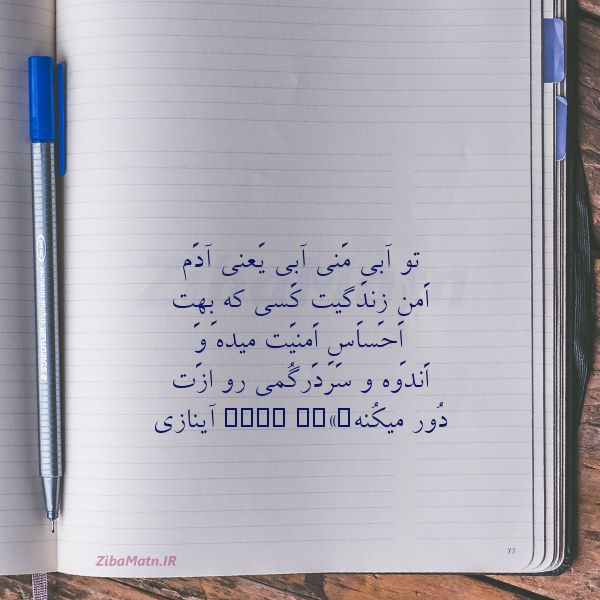 تو آبیِ مَنی آبی یَعنی آدَم
اَمن زندَگیت کَسی که بهت
اَحَساَسِ اَمنیَت میده وَ
اَندَوه و سَرَدَرگُمی رو ازَت
دُور میکُنه▯»▯▯ ▯▯▯▯ آینازی
ZibaMatn.IR
ZibaMatn
77